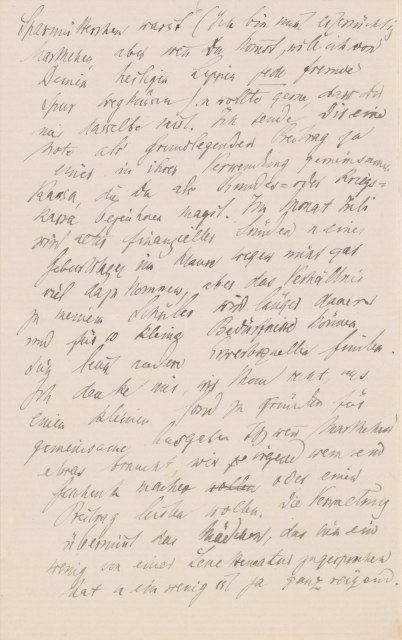 Sparmütterchen warst (Ich bin nicht eifersüchtig
Marthchen, aber wenn Du kommst, will ich von
Deinen heiligen Lippen jede fremde
Spur wegküssen) u wollte gerne, dass Du
mir dasselbe tust. Ich sende Dir eine
Note als grundlegenden Beitrag zu
einer in ihrer Verwendung gemeinsamen
Kassa, die Du als Bundes= oder Kriegs=
kassa bezeichnen magst. Im Monat Juli
wird aus finanziellen Gründen u eines
Geburtstages im Hause wegen nicht gar
viel dazu kommen, aber das Verhältnis
zu meinem Schüler wird länger dauern
und für so kleine Bedürfnisse können
sich leicht andere finden.
Ich denke mir, wir thun recht, uns
einen kleinen Fond zu gründen für
gemeinsame Ausgaben, wenn Marthchen
etwas braucht, wir irgend wem ein
Geschenk machen wollen oder einen
Beitrag leisten wollen. Die Verwaltung
übernimmt das Mädchen, das ein
wenig von einer zugesprochen
hat u ein wenig ist ja ganz reizend.